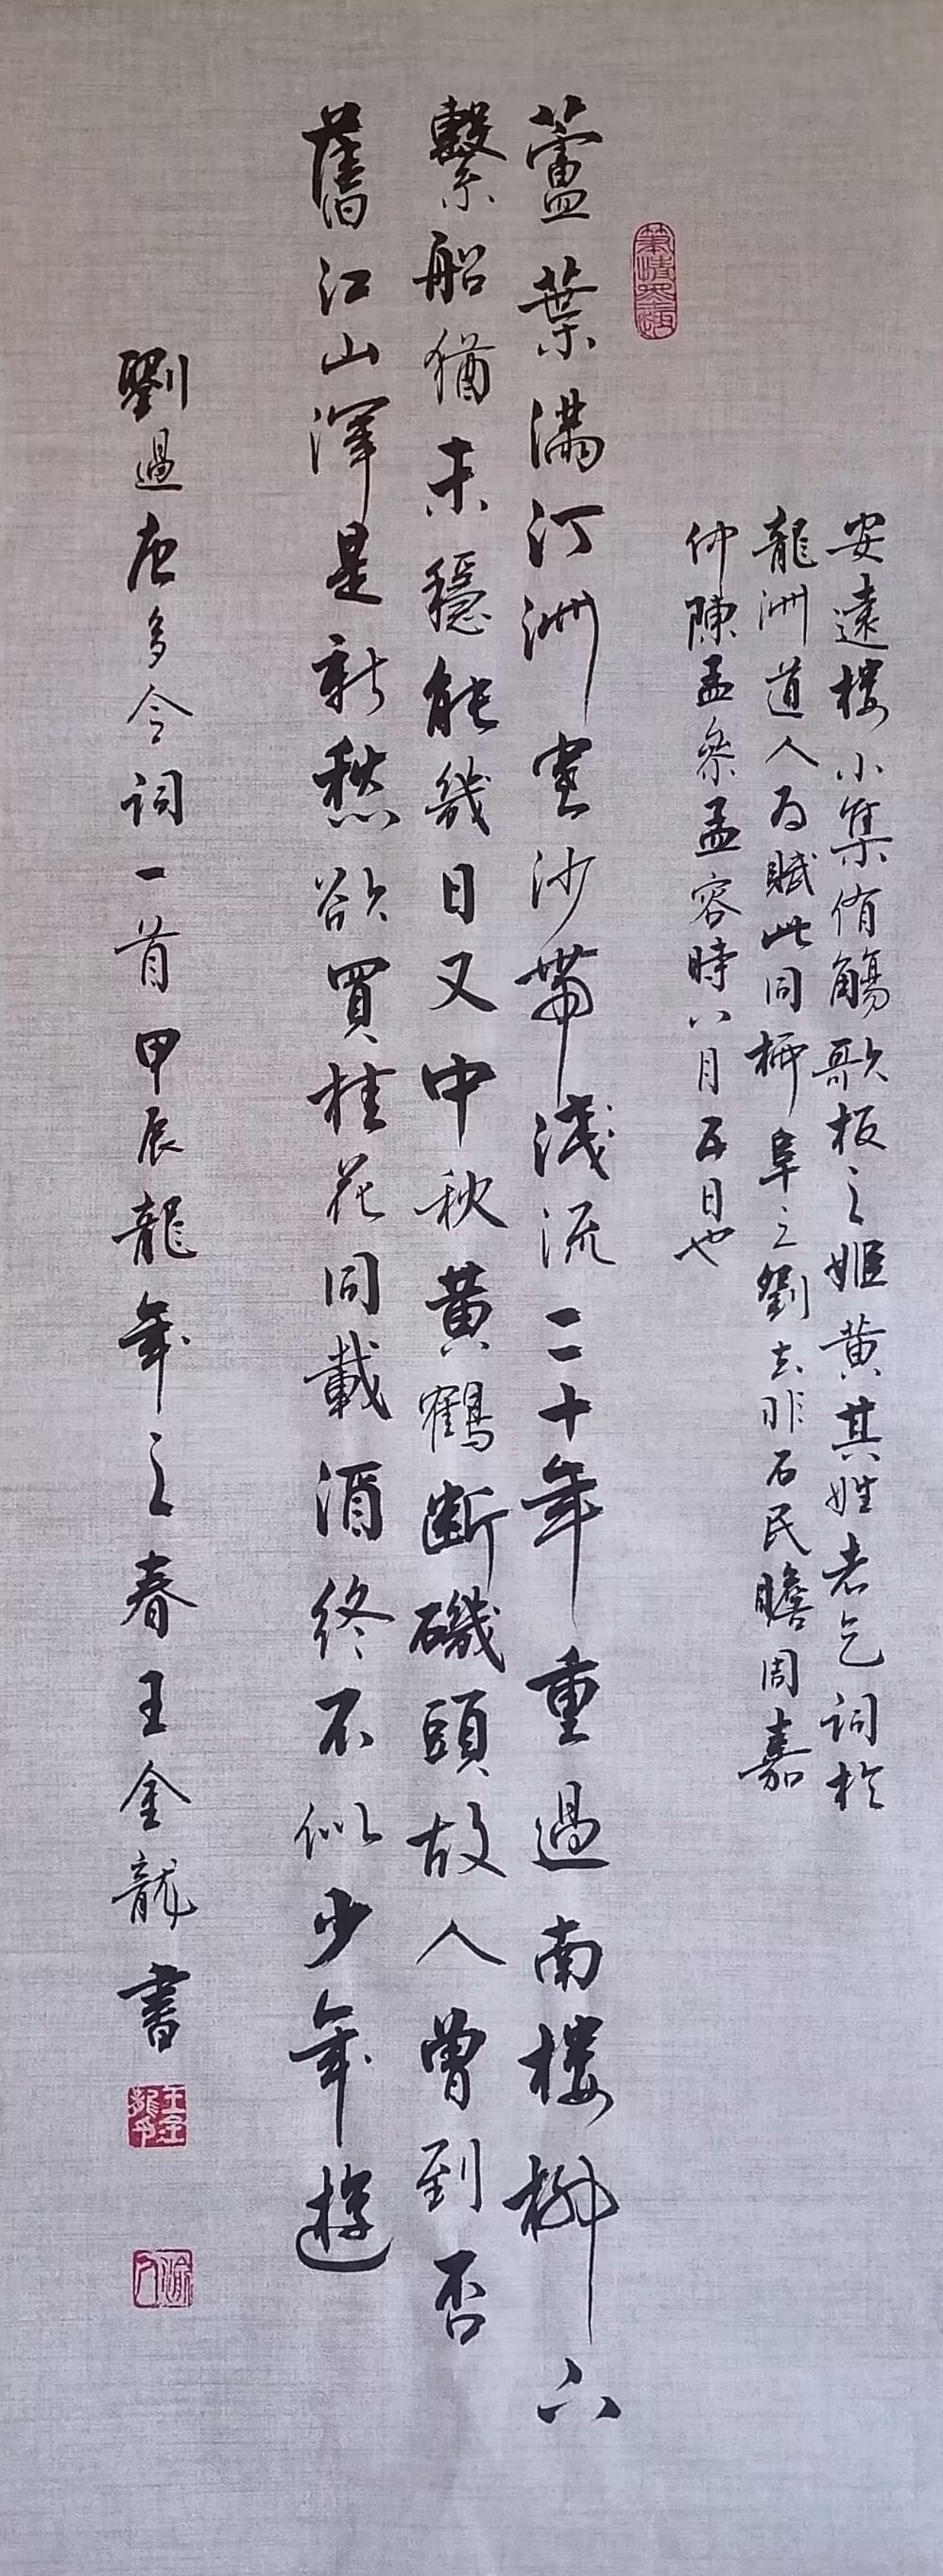 安遠樓小集侑觴歌板之姬黄其姓者乞詞於
龍洲道人为賦此同柳阜之劉去非石民瞻周嘉
仲陳孟參孟容時八月五日也
蘆葉滿汀洲寒沙帶淺流二十年重過南樓柳下
繫船猶未穩能幾日又中秋黃鶴断磯頭故人曾到否
舊江山渾是新愁欲買桂花同載酒終不似少年遊
劉過唐多令詞一首甲辰龍年之春王金龍書
王金龍印
渝人